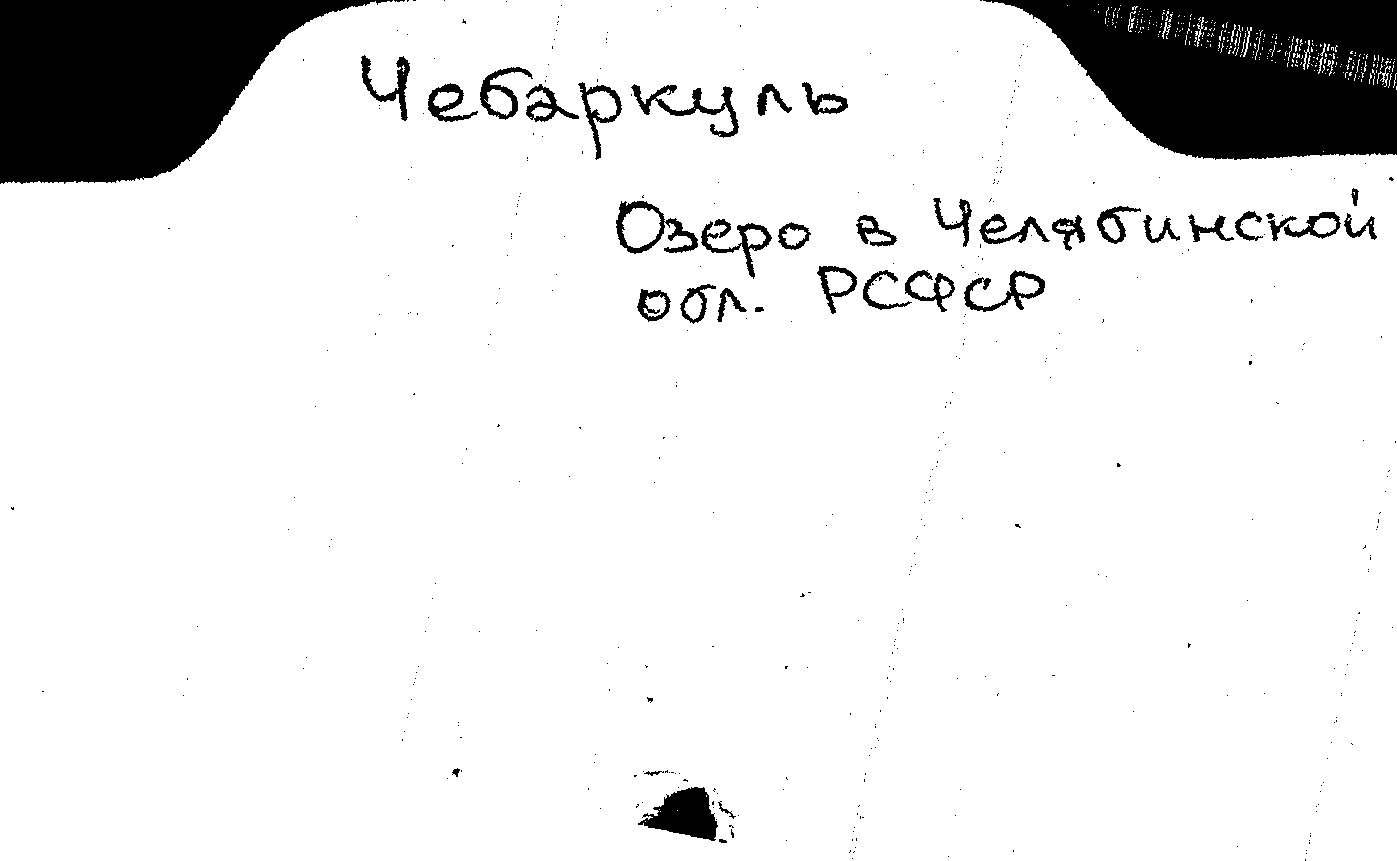 Чебаркуль
Озеро в Челябинской
обл. РСФСР